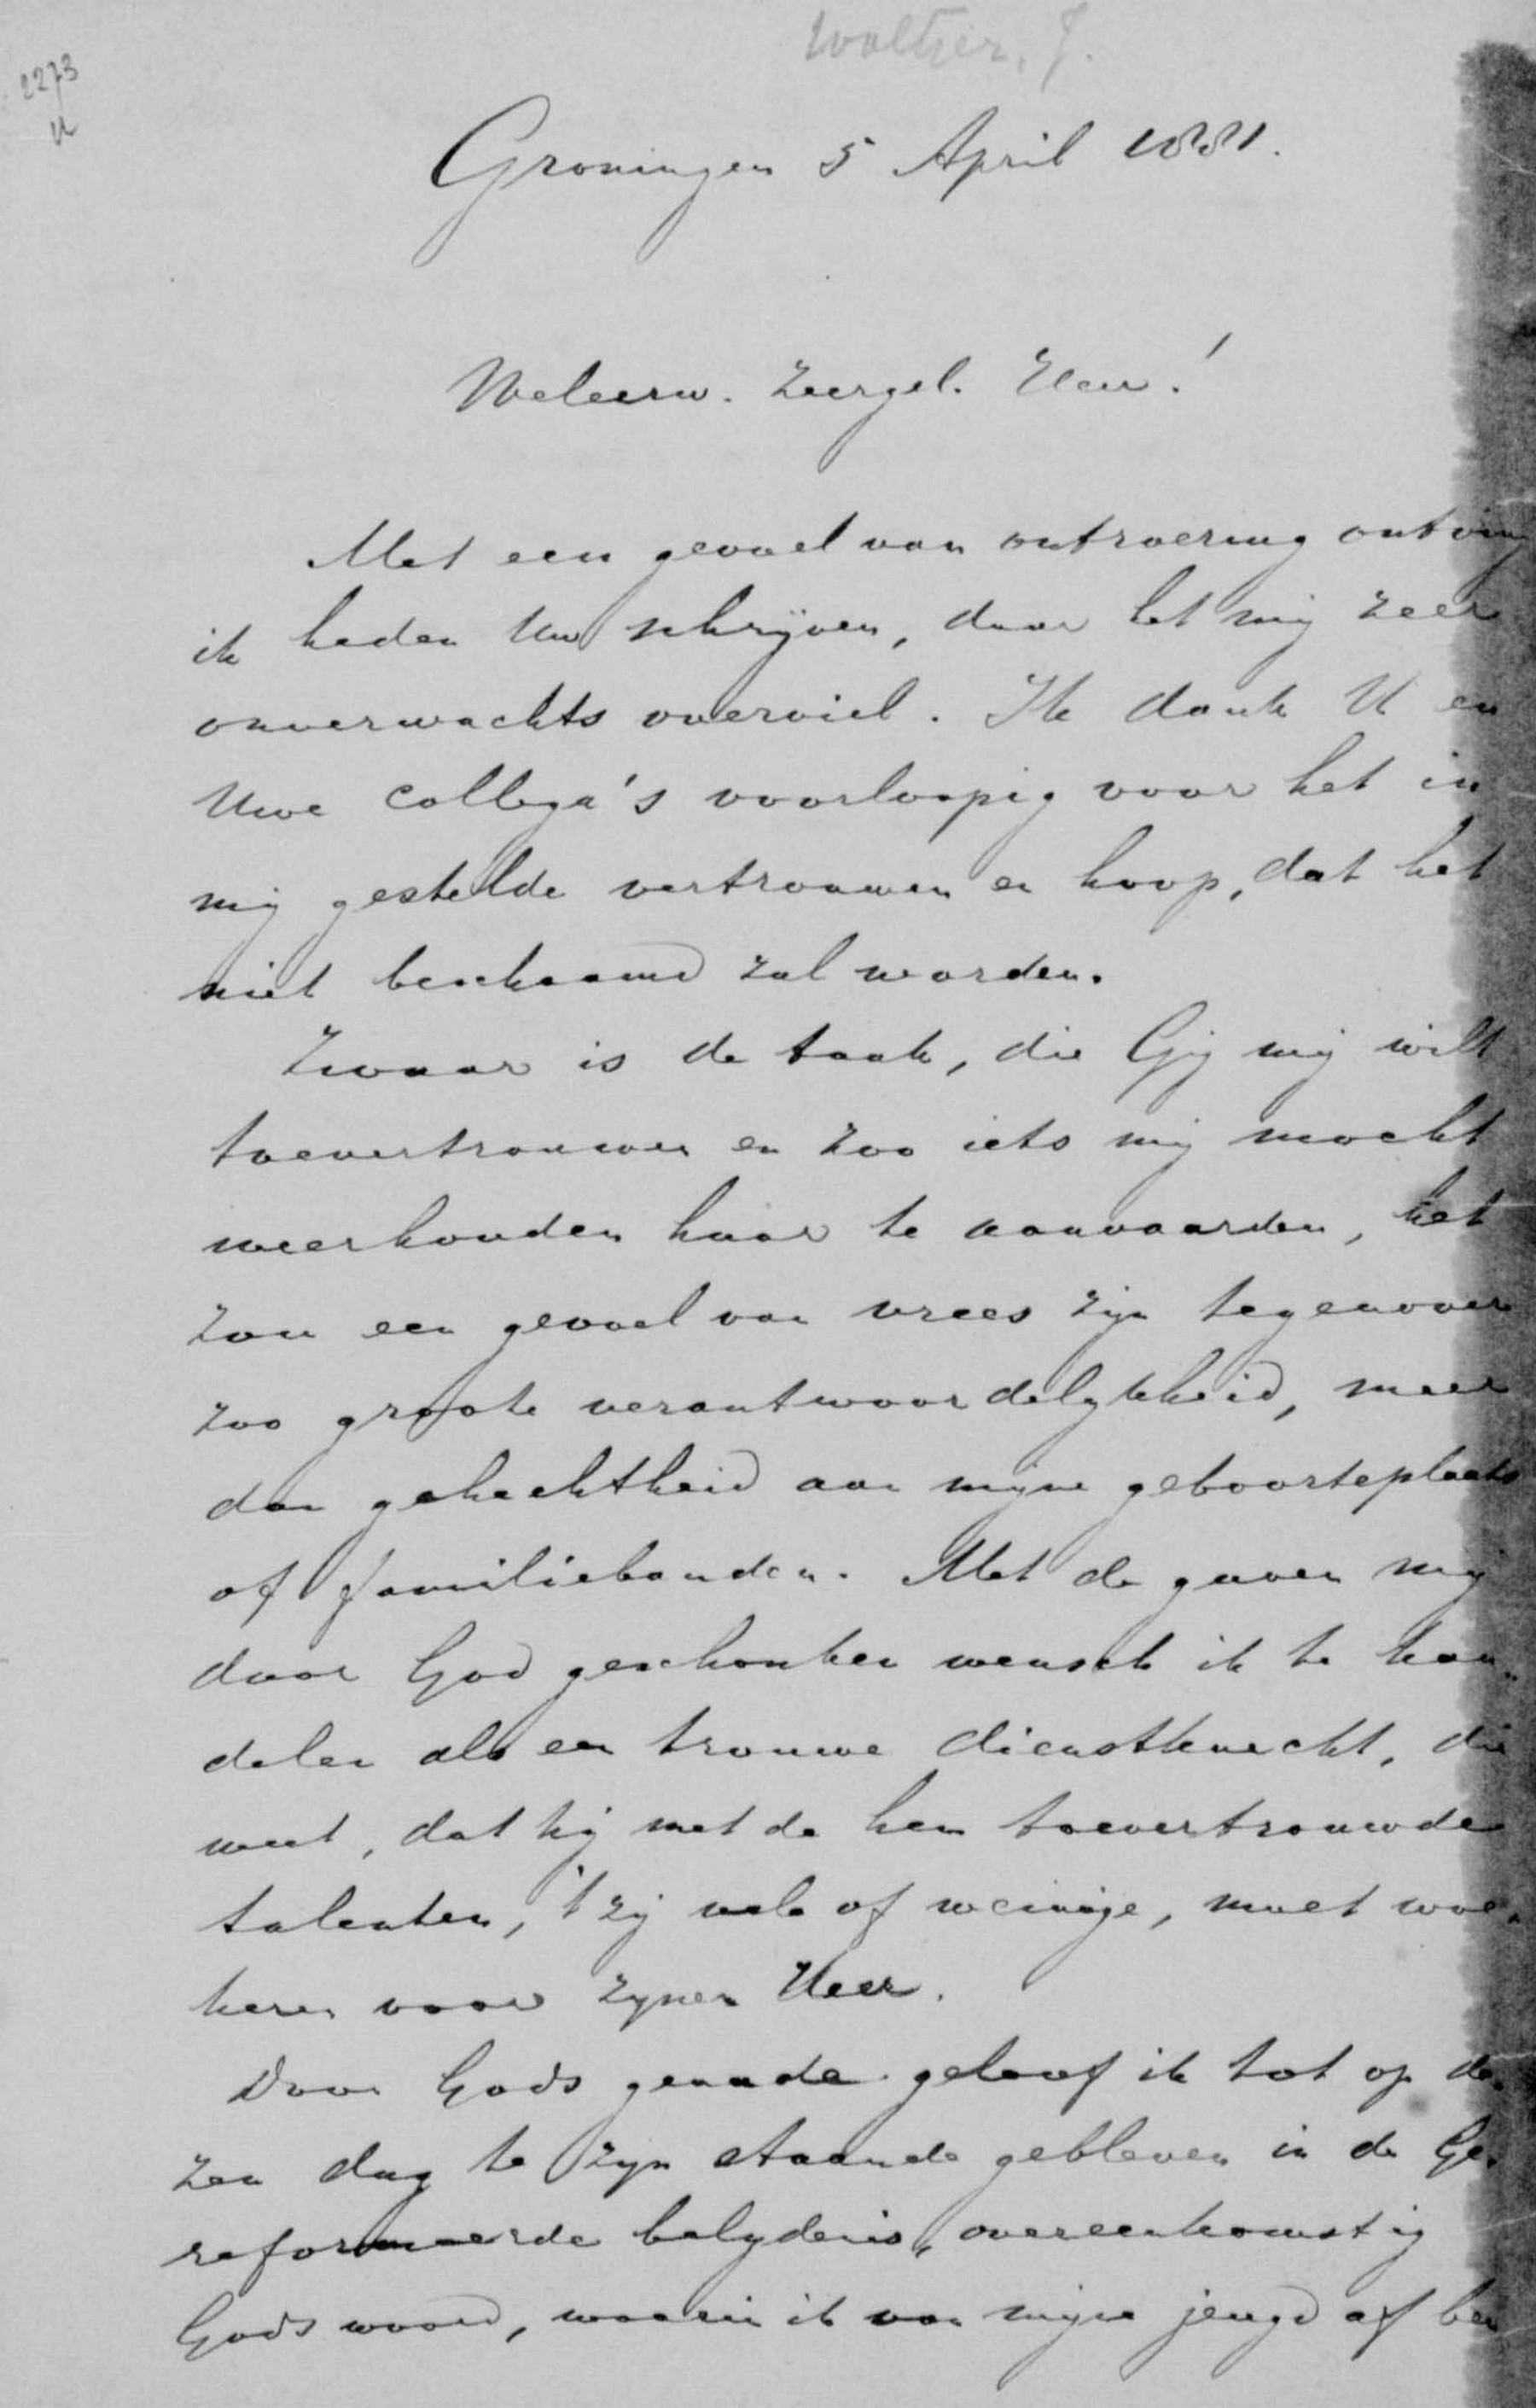 Woltjer, J.
2273
Groningen 5 April 1881.
Weleerw. Zeergel. Heer!
Met een gevoel van ontroering ontving
ik heden Uw schrijven, daar het mij zeer
onverwachts overviel. Ik dank U en
Uwe collega's voorloopig voor het in
mij gestelde vertrouwen en hoop, dat het
niet beschaamd zal worden.
Zwaar is de taak, die Gij mij wilt
toevertrouwen en zoo iets mij mocht
weerhouden haar te aanvaarden, het
zou een gevoel van vrees zijn tegenover
zoo groote verantwoordelykheid, meer
dan gehechtheid aan mijne geboorteplaats
of familiebanden. Met de gaven mij
door God geschonken wensch ik te han-
delen als een trouwe dienstknecht, die
weet, dat hij met de hem toevertrouwde
talenten, 't zij vele of weinige, moet woe-
keren voor zynen Heer.
Door Gods genade geloof ik tot op de-
zen dag te zyn staande gebleven in de Ge-
reformeerde belydenis, overeenkomstig
Gods woord, waarin ik van mijne jeugd af ben